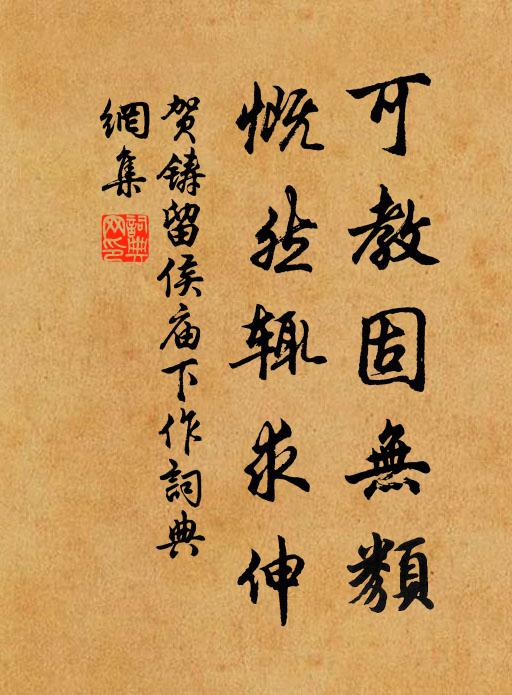 可教固無類
慨然辄求伸
贺鑄留侯庙下作詞典
網集
詞典
网印